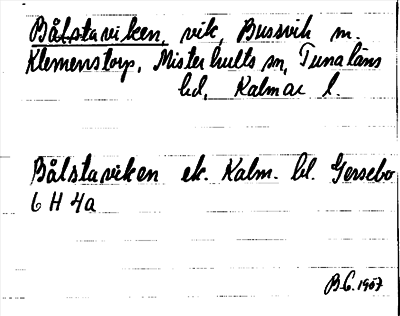 Bålstaviken, vik, Bussvik m.
Klemenstorp, Misterhults sn, Tunaläns
hd, Kalmar l.
Bålstaviken ek. Kalm. bl. Gersebo
6 H 4a
B.G. 1967